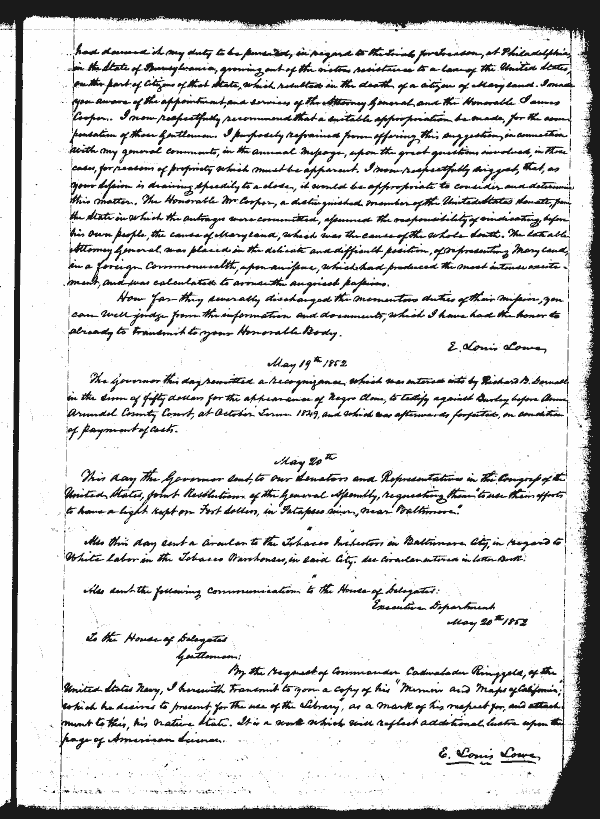 had deemed it my duty to be pursued, in regard to the trials for Treason, at Philadelphia,
in the State of Pennsylvania, growing out of the vicious resistance to a law of the United States,
on the part of citizens of that State, which resulted in the death of a citizen of Maryland. I made
you aware of the appointment, and services of the Attorney General, and the Honorable James
Cooper. I now respectfully recommend that a suitable appropriation be made, for the com-
pensation of those Gentlemen. I purposely refrained from offering this suggestion, in connection
with my general comments, in the annual message, upon the great questions involved, in these
cases, for reasons of propriety which must be apparent. I now respectfully suggest, that, as
your session is drawing speedily to a close, it would be appropriate to consider and determine
this matter. The Honorable Mr Cooper, a distinguished member of the United States Senate, from
the State in which the outrage were committed, assumed the responsibility of vindicating, before
his own people, the cause of Maryland, which was the cause of the whole South. The late able
Attorney General, was placed in the delicate and difficult position, of representing Maryland,
in a foreign Commonwealth, upon an issue, which had produced the most intense excite-
ment, and was calculated to arouse the angriest passions.
How far they severally discharged the momentous duties of their mission, you
can well judge from the information and documents, which I have had the honor to
already to transmit to your Honorable Body.
E. Louis Lowe,
May 19th 1852
The Governor this day remitted a recognizance, which was entered into by Richard B. Darnall
in the sum of fifty dollars for the appearance of Negro Clem, to testify against Burley before Anne
Arundel County Court, at October Term 1849, and which was afterwards forfeited, on condition
of payment of costs.
May 20th
This day the Governor sent, to our Senators and Representatives in the Congress of the
United States, joint Resolutions of the General Assembly, requesting them to use their efforts
to have a light kept on Fort Sollers, in Patapsco river, near Baltimore."
Also this day sent a Circular to the Tobacco Inspectors in Baltimore City, in regard to
White labor in the Tobacco Warehouses, in said City. see Circular entered in letter Book.
Also sent the following communication to the House of Delegates:
Executive Department
May 20th 1852
To the House of Delegates
Gentlemen:
By the request of Commander Cadwalader Ringgold, of the
United States Navy, I herewith transmit to you a copy of his "Memoir and Maps of California,"
which he desires to present for the use of the Library, as a mark of his respect for, and attach-
ment to this, his native State. It is a work which will reflect additional lustre upon the
page of American Science.
E. Louis Lowe,